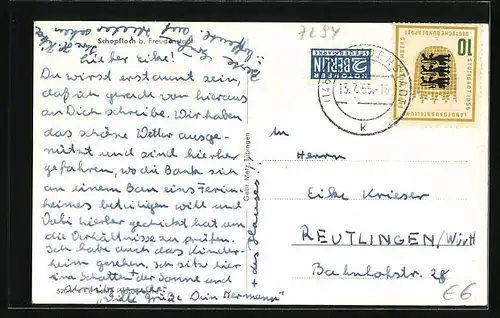 Schopfloch b. Freudenstadt
7294
Lieber Eike!
Du wirst erstaunt sein,
daß ich gerade von hieraus
an Dich schreibe. Wir haben
das schöne Wetter ausge-
nützt und sind hierher
gefahren, wo die Bank sich
an einem Bau eines Ferien-
heimes beteiligen will und
Vati hierher geschickt hat um
die Verhältnisse zu prüfen.
Ich habe auch das Kinder-
heim gesehen. Ich sitze hier
im Schatten der Sonne und
Viele Grüße Dein Hermann
+ des Hauses!
Gebr. Metz, Tübingen
NOTOPFER
2 BERLIN
STEUERMARKE
13.7.55.-18
k
10
DEUTSCHE BUNDESPOST
LANDESAUSSTELLUNG
STUTTGART 1955
An
Herrn
Eike Krieser
REUTLINGEN/Württ
Bahnhofstr. 28
€6